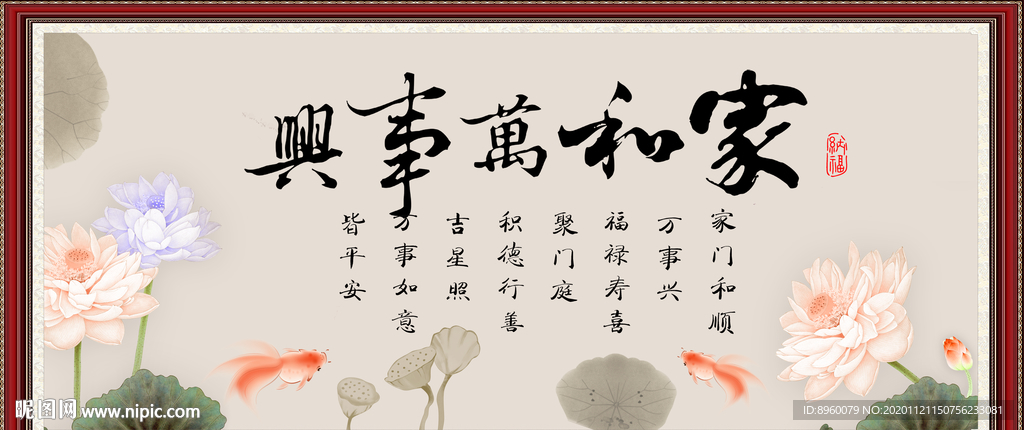 家和萬事興
納福
家门和顺
万事兴
福禄寿喜
聚门庭
积德行善
吉星照
万事如意
皆平安
昵图网 www.nipic.com
ID:8960079 NO:20201121150756233081